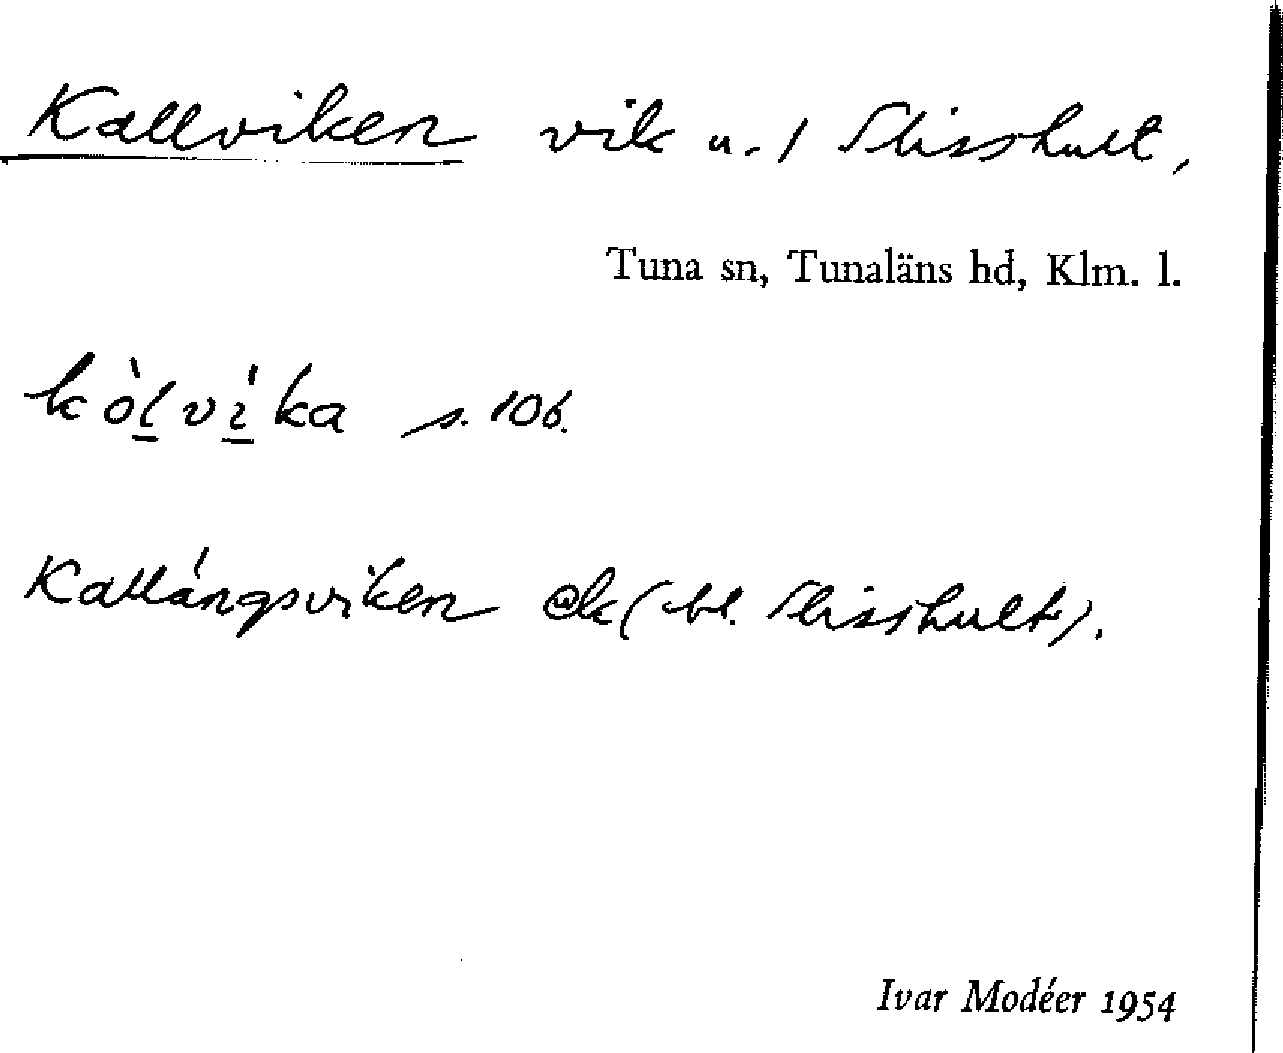 Kallviken vik u. / Slisshult,
Tuna sn, Tunaläns hd, Klm. l.
kòlvíka s. 106.
Kallängsviken ek (bl. Slisshult).
Ivar Modéer 1954